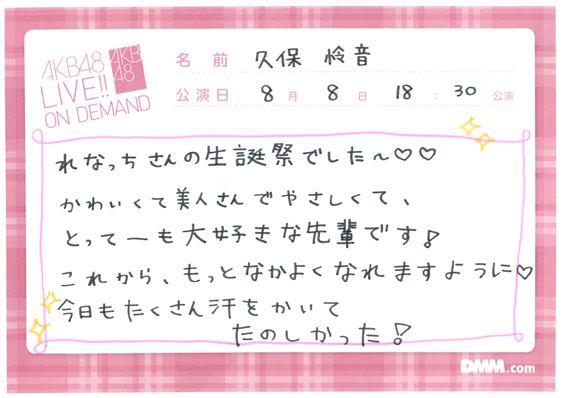 AKB48
LIVE!!
ON DEMAND
AKB
48
名前 久保 怜音
公演日 8月 8日 18:30 公演
れなっちさんの生誕祭でした〜♡♡
かわいくて美人さんでやさしくて、
とってーも大好きな先輩です!
これから、もっとなかよくなれますように♡
今日もたくさん汗をかいて
たのしかった!
DMM.com